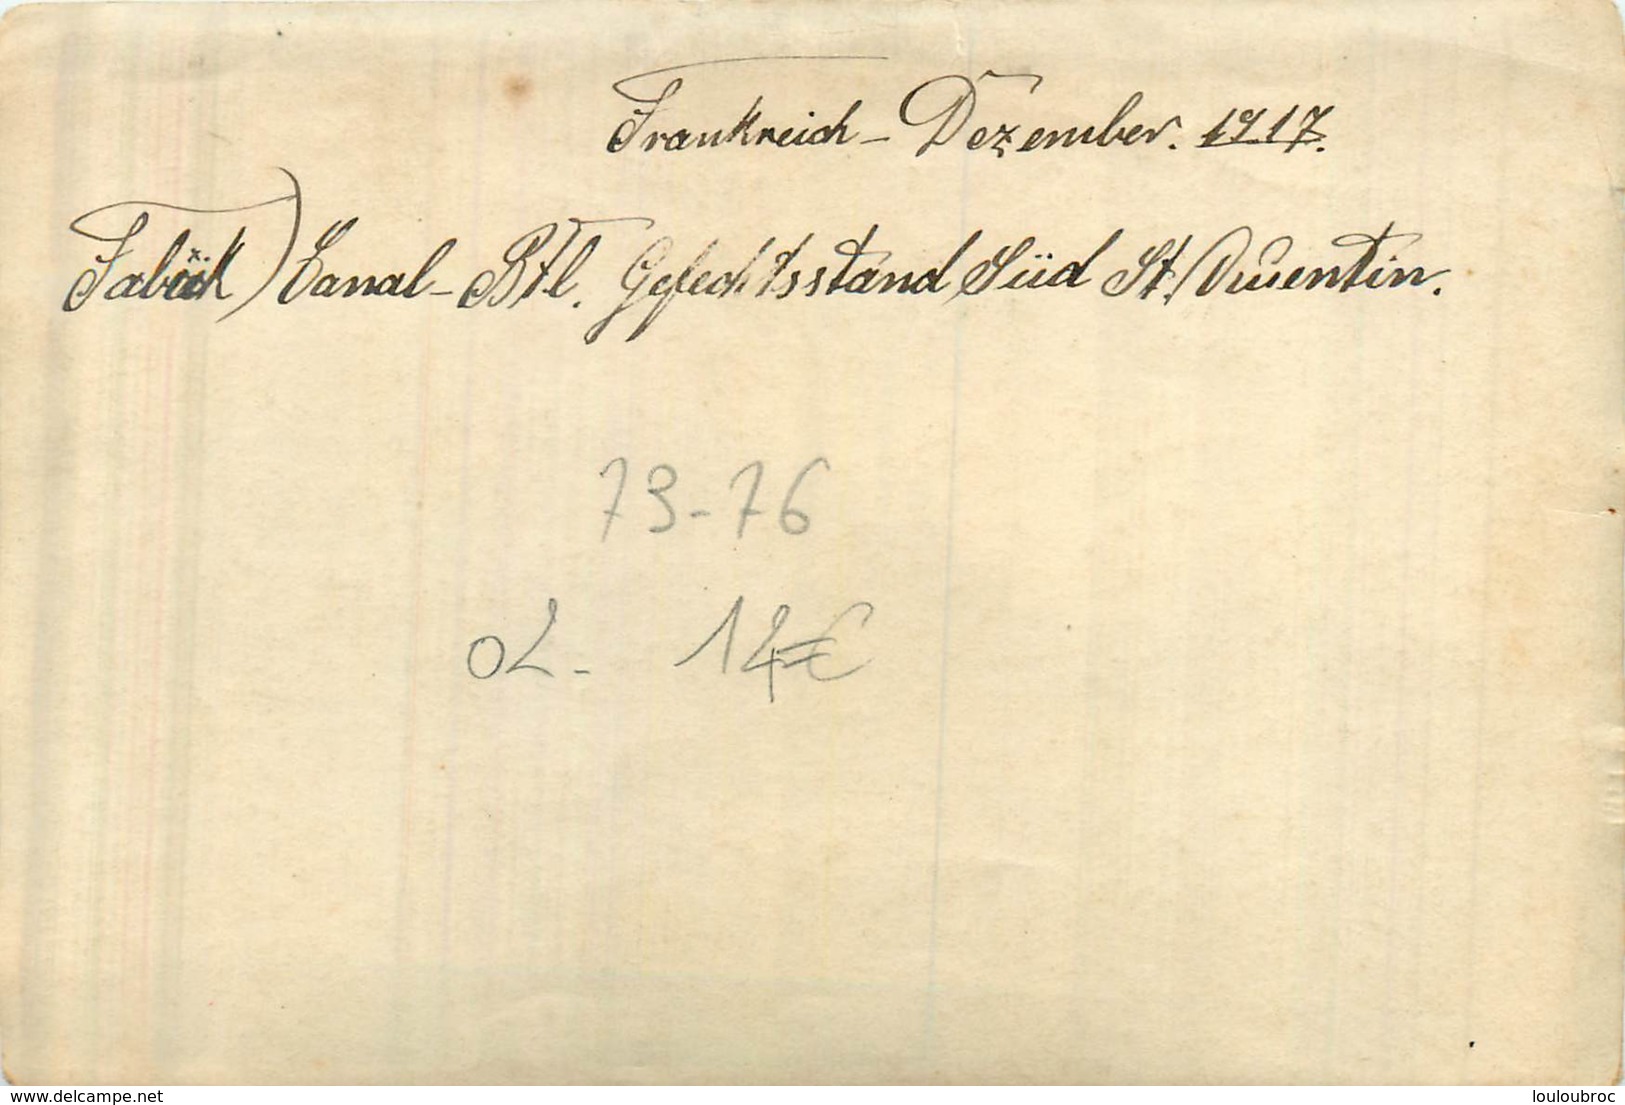 Frankreich - Dezember. 1917.
Kanal - Btl. Gefechtsstand Süd St. Quentin.
73-76
02- 14€
delcampe.net
louloubroc